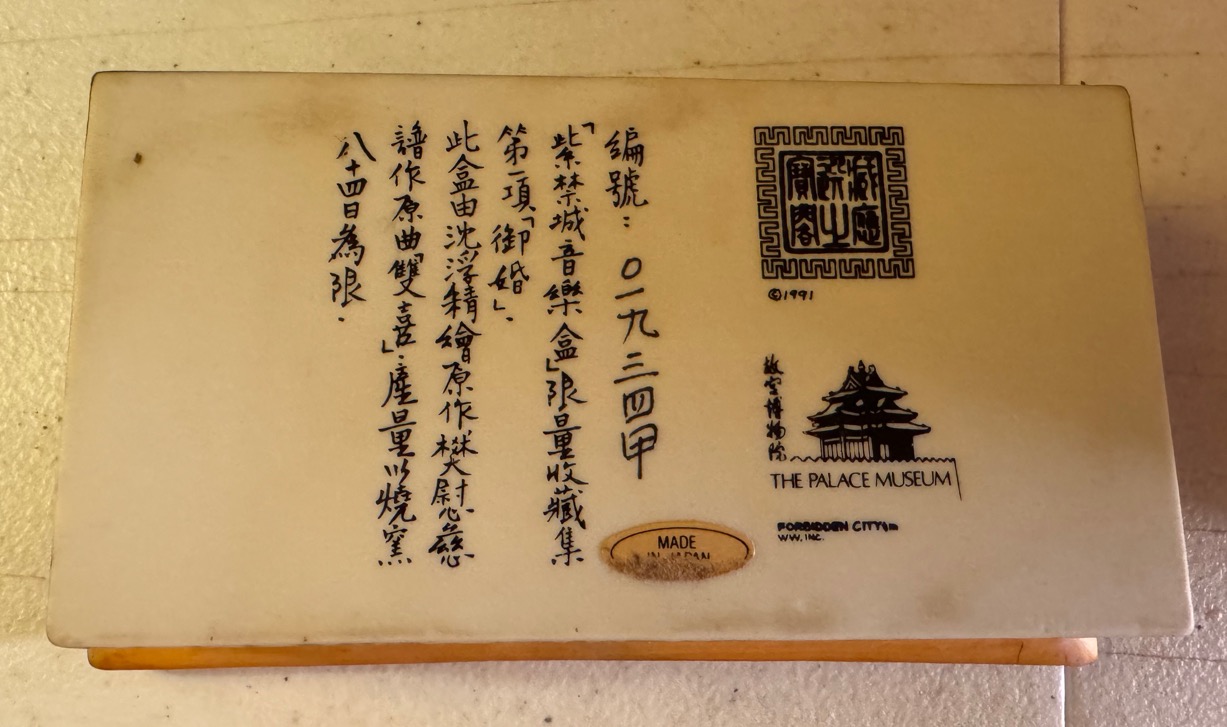 編號：〇一九三四甲
「紫禁城音樂盒」限量收藏集
第一項「御婚」．
此盒由沈浮精繪原作樊慰慈
譜作原曲「雙喜」．產量以燒窯
八十四日為限．
©1991
故宮博物院
THE PALACE MUSEUM
FORBIDDEN CITY™
WW. INC.
MADE
IN JAPAN